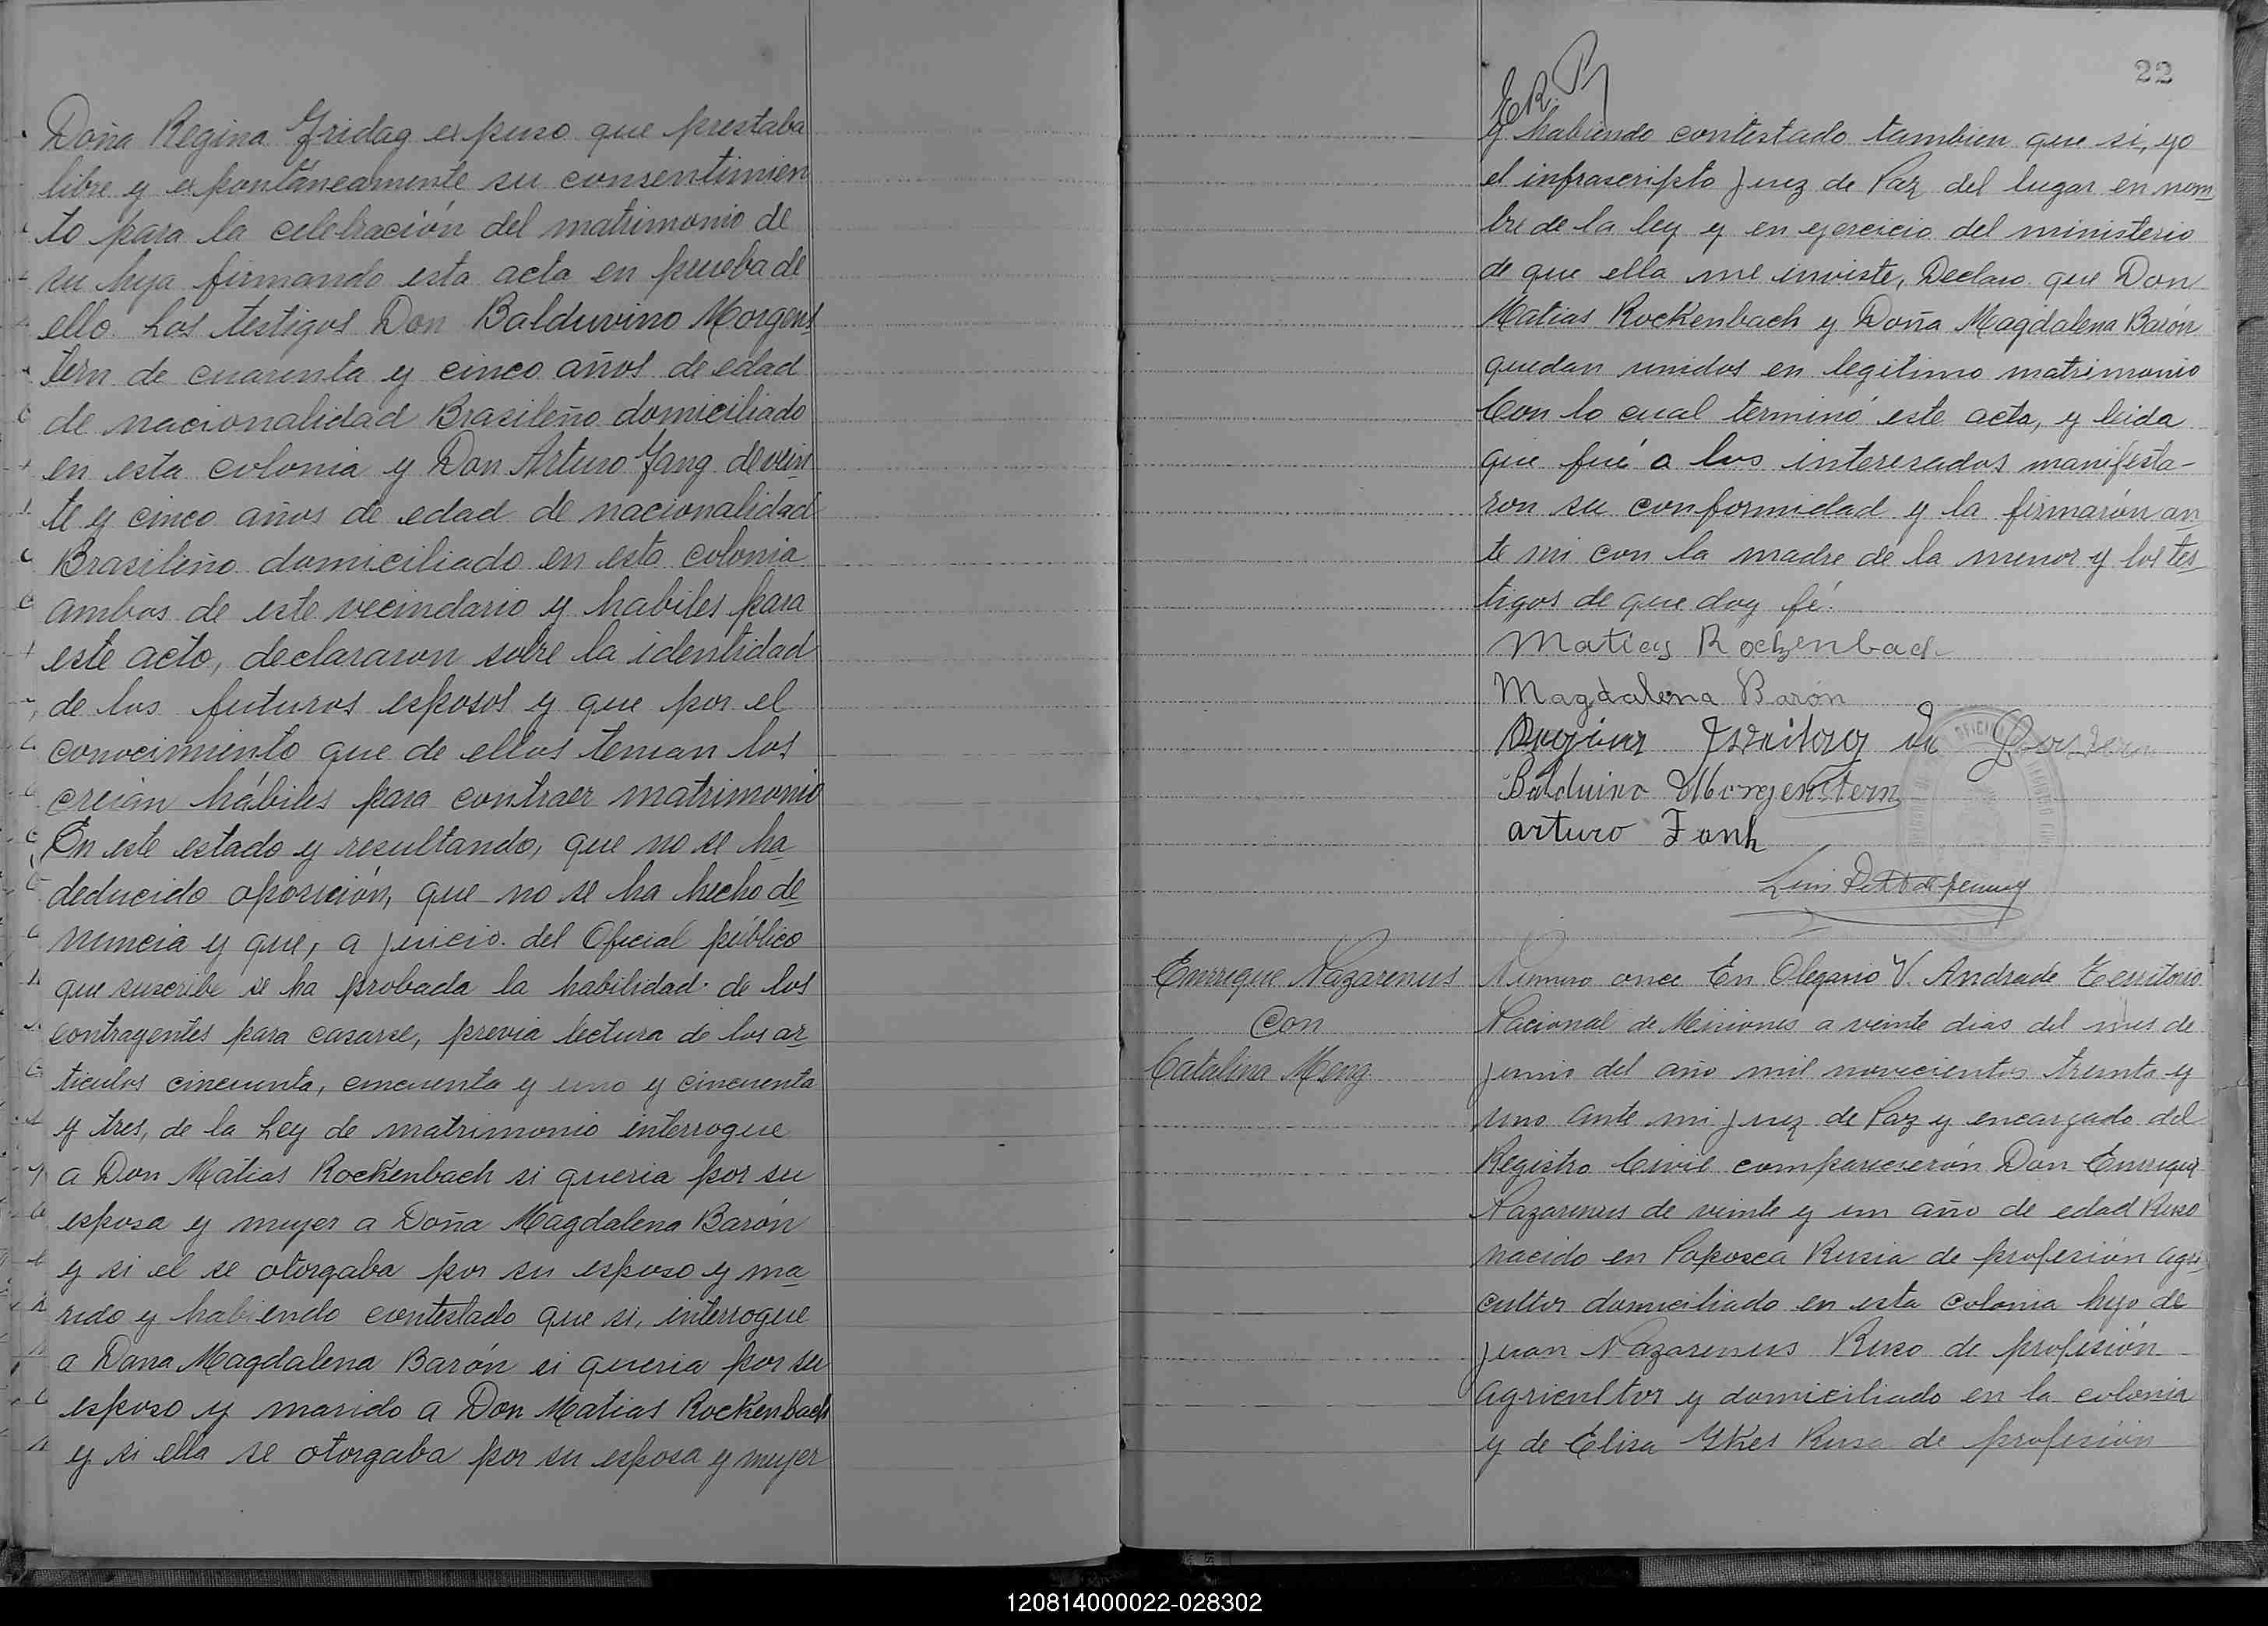 Doña Regina Fridag expuso que prestaba
libre y expontáneamente su consentimien
to para la celebración del matrimonio de
su hija firmando esta acta en prueba de
ello. Los testigos Don Balduvino Morgens
tern de cuarenta y cinco años de edad
de nacionalidad Brasileño domiciliado
en esta colonia y Don Arturo Jang de vein
te y cinco años de edad de nacionalidad
Brasileño domiciliado en esta colonia
ambos de este vecindario y habiles para
este acto, declararon sobre la identidad
de los futuros esposos y que por el
conocimiento que de ellos tenian los
creian hábiles para contraer matrimonio
En este estado y resultando, que no se ha
deducido oposición, que no se ha hecho de
nuncia y que, a juicio del Oficial público
que suscribe se ha probada la habilidad de los
contragentes para casarse, previa lectura de los ar
ticulos cincuenta, cincuenta y uno y cincuenta
y tres, de la Ley de matrimonio interrogue
a Don Matias Rockenbach si queria por su
esposa y mujer a Doña Magdalena Barón
y si el se otorgaba por su esposo y ma
rido y habiendo contestado que si, interrogue
a Dana Magdalena Barón si queria por su
esposo y marido a Don Matias Rockenbach
y si ella se otorgaba por su esposa y mujer
22
E.R.P
y habiendo contestado tambien que si, yo
el infrascripto Juez de Paz del lugar en nom
bre de la ley y en ejercicio del ministerio
de que ella me inviste, Declaro que Don
Matias Rockenbach y Doña Magdalena Barón
quedan unidos en legitimo matrimonio
Con lo cual terminó este acta, y leida
que fué a los interesados manifesta-
ron su conformidad y la firmarón an
te mi con la madre de la menor y los tes
tigos de que doy fé.
Matias Rockenbach
Magdalena Barón
Regina Freitag de
Balduino Morgenstern
arturo Fank
Luis
Enrrique Nazarenus
Con
Catalina Meng.
Número once En Olegario V. Andrade Territorio
Nacional de Misiones a veinte dias del mes de
junio del año mil novecientos treinta y
uno ante mi Juez de Paz y encargado del
Registro Civil comparecierón Don Enrrique
Nazarenus de veinte y un año de edad Ruso
nacido en Poposca Rusia de profesión agri
cultor domiciliado en esta colonia hijo de
Juan Nazarenus Ruso de profesión
agricultor y domiciliado en la colonia
y de Elisa Ykes Rusa de profesión
120814000022-028302